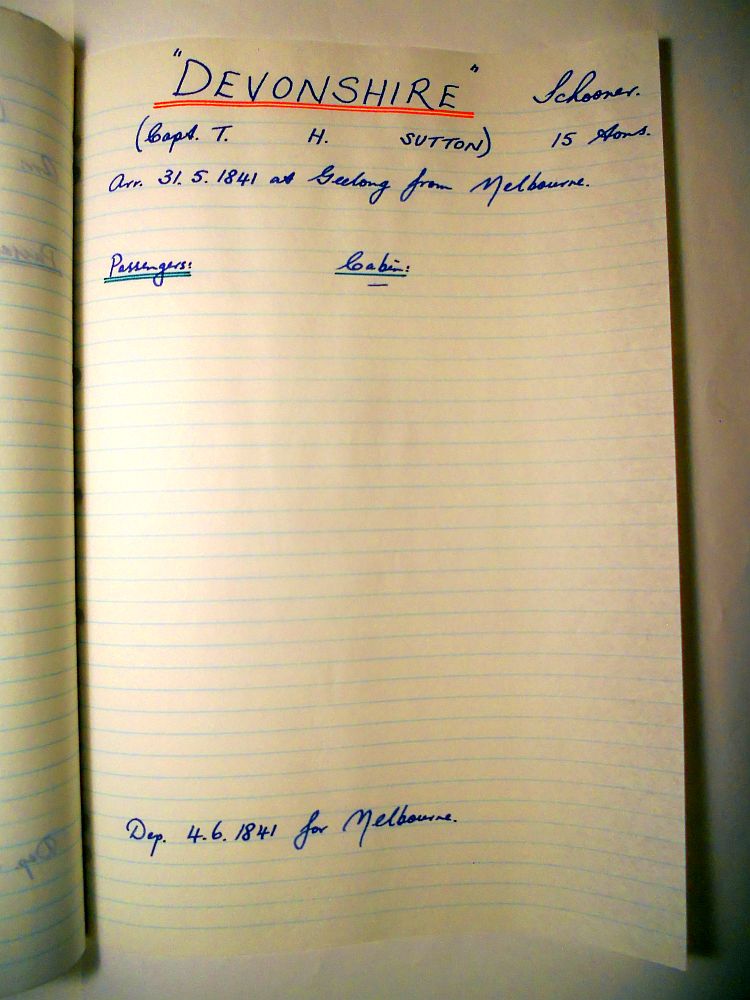 "DEVONSHIRE" Schooner.
(Capt. T. H. SUTTON) 15 tons.
Arr. 31.5.1841 at Geelong from Melbourne.
Passengers: Cabin:
Dep. 4.6.1841 for Melbourne.